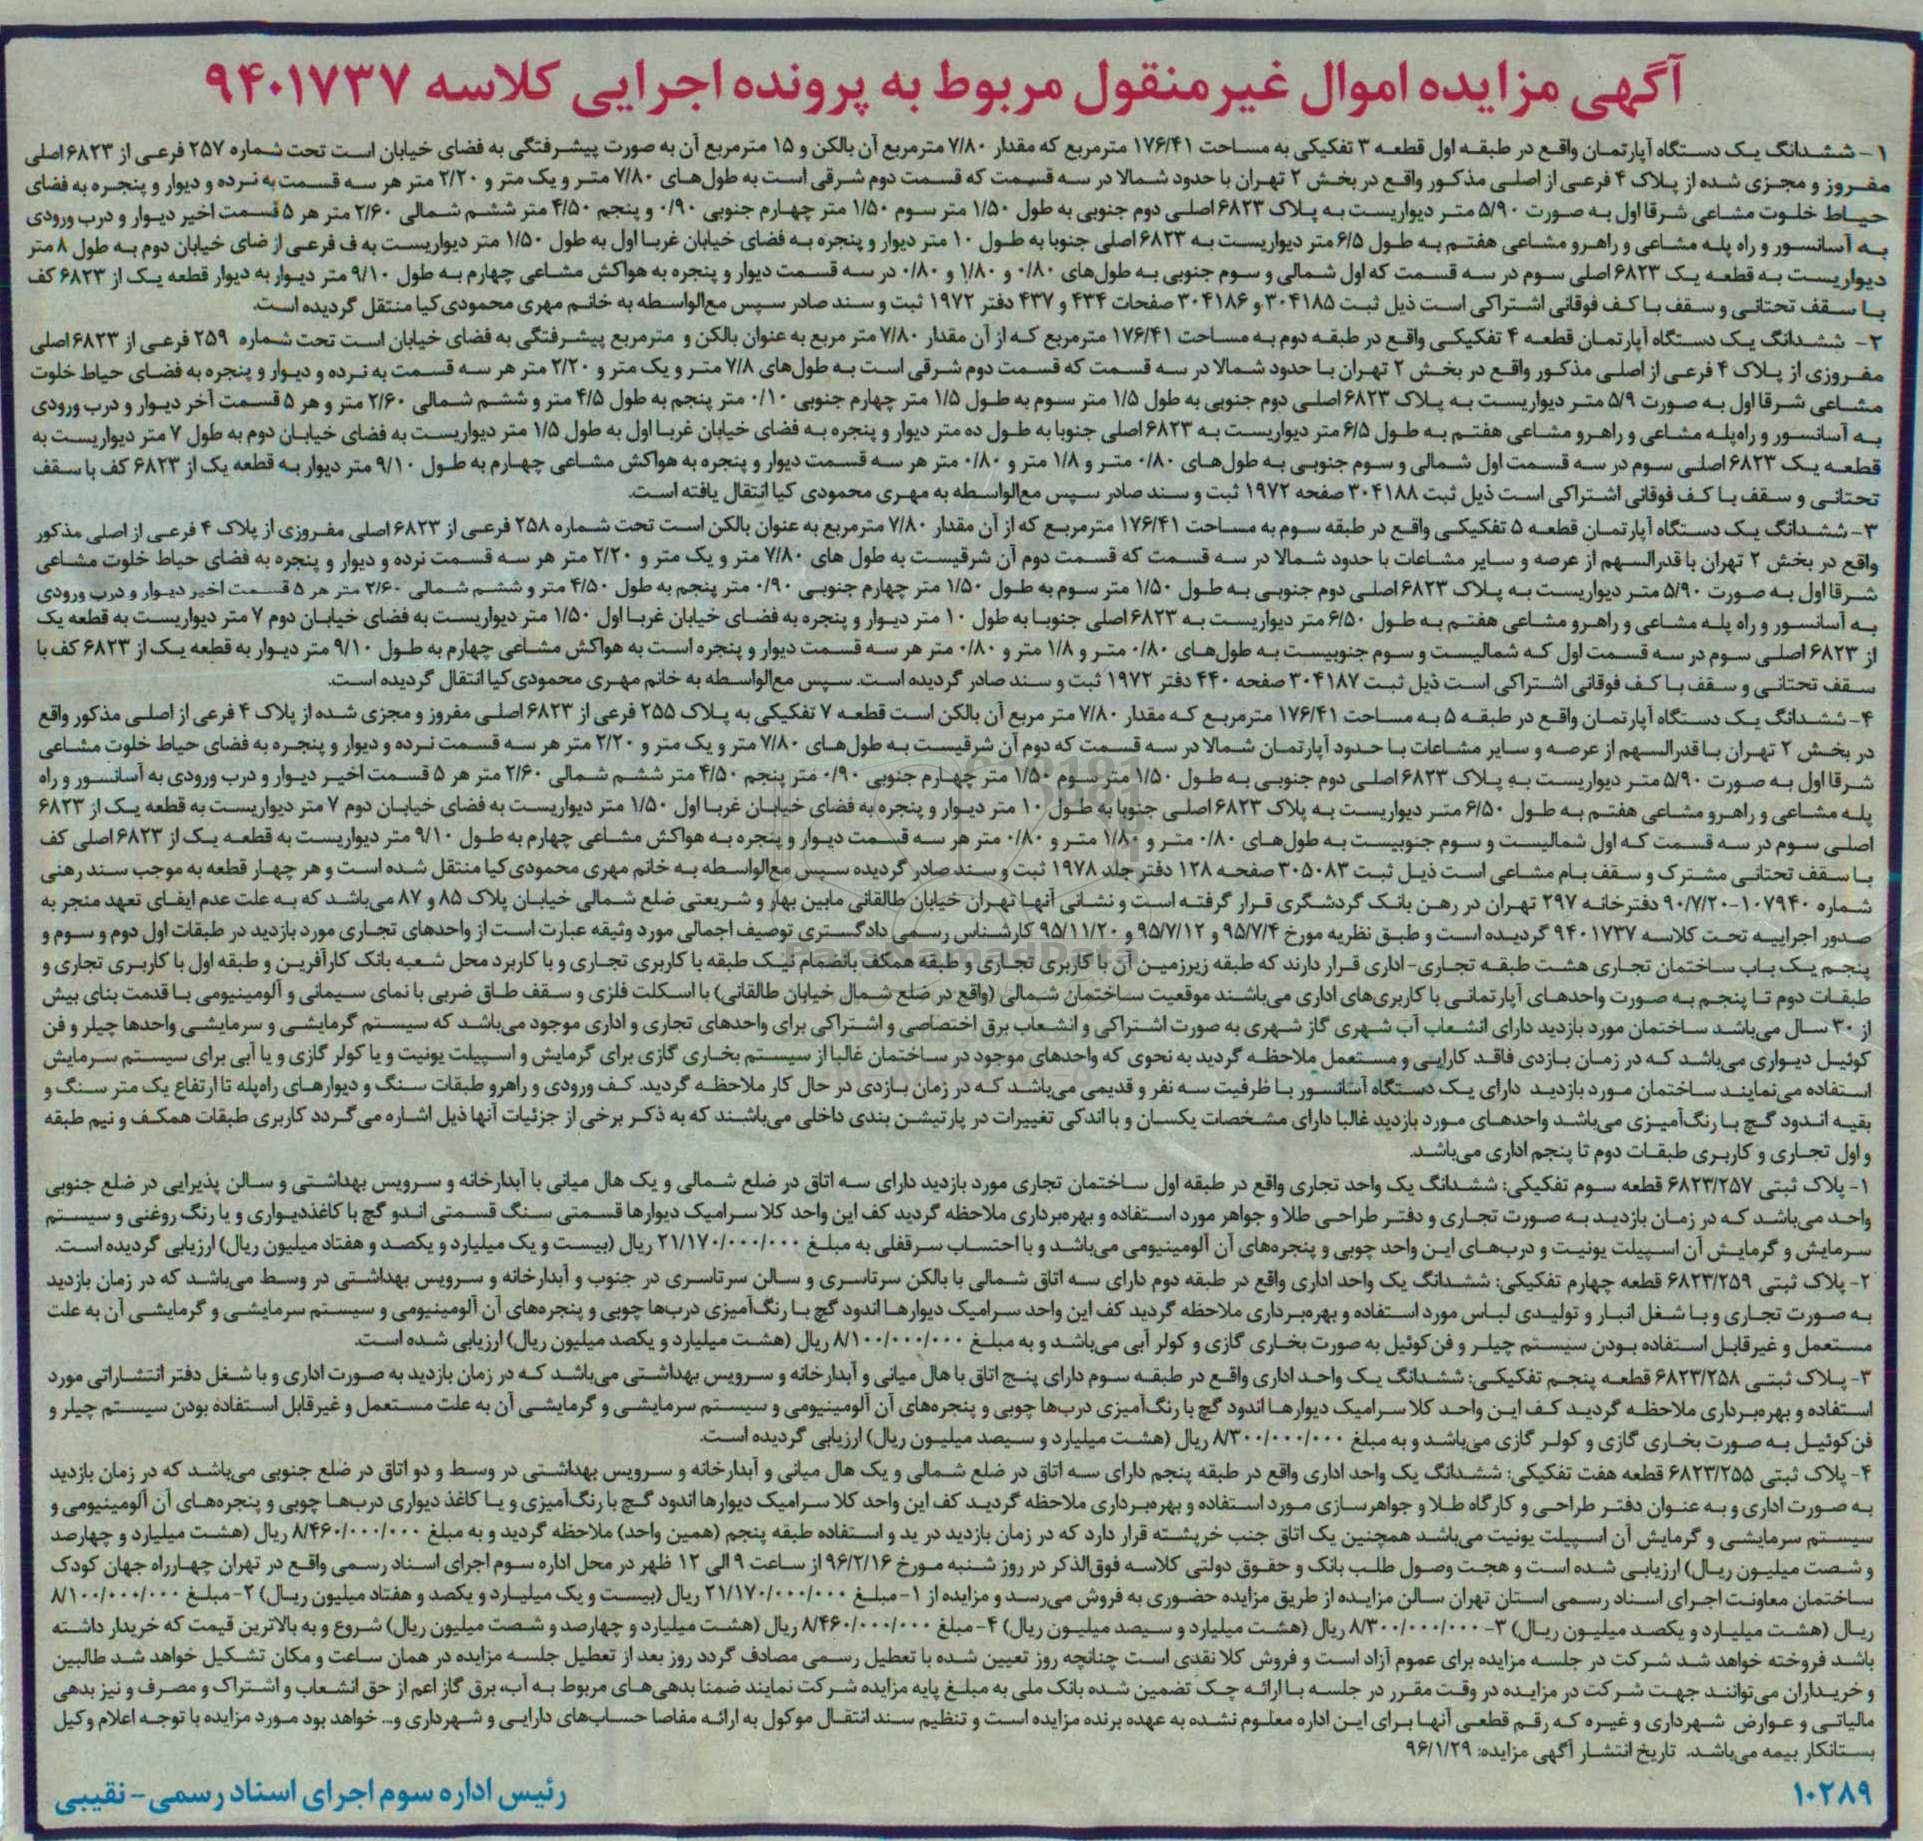 آگهی مزایده اموال غیرمنقول مربوط به پرونده اجرایی کلاسه ۹۴۰۱۷۳۷
۱- ششدانگ یک دستگاه آپارتمان واقع در طبقه اول قطعه ۳ تفکیکی به مساحت ۱۷۶/۴۱ مترمربع که مقدار ۷/۸۰ مترمربع آن بالکن و ۱۵ مترمربع آن به صورت پیشرفتگی به فضای خیابان است تحت شماره ۲۵۷ فرعی از ۶۸۲۳ اصلی
مفروز و مجزی شده از پلاک ۴ فرعی از اصلی مذکور واقع در بخش ۲ تهران با حدود شمالا در سه قسمت که قسمت دوم شرقی است به طول‌های ۷/۸۰ متر و یک متر و ۲/۲۰ متر هر سه قسمت به نرده و دیوار و پنجره به فضای
حیاط خلوت مشاعی شرقا اول به صورت ۵/۹۰ متر دیواریست به پلاک ۶۸۲۳ اصلی دوم جنوبی به طول ۱/۵۰ متر سوم ۱/۵۰ متر چهارم جنوبی ۰/۹۰ و پنجم ۴/۵۰ متر ششم شمالی ۲/۶۰ متر هر ۵ قسمت اخیر دیوار و درب ورودی
به آسانسور و راه پله مشاعی و راهرو مشاعی هفتم به طول ۶/۵ متر دیواریست به ۶۸۲۳ اصلی جنوبا به طول ۱۰ متر دیوار و پنجره به فضای خیابان غربا اول به طول ۱/۵۰ متر دیواریست به ف فرعی از ضای خیابان دوم به طول ۸ متر
دیواریست به قطعه یک ۶۸۲۳ اصلی سوم در سه قسمت که اول شمالی و سوم جنوبی به طول‌های ۰/۸۰ و ۱/۸۰ و ۰/۸۰ در سه قسمت دیوار و پنجره به هواکش مشاعی چهارم به طول ۹/۱۰ متر دیوار به دیوار قطعه یک از ۶۸۲۳ کف
با سقف تحتانی و سقف با کف فوقانی اشتراکی است ذیل ثبت ۳۰۴۱۸۵ و ۳۰۴۱۸۶ صفحات ۴۳۴ و ۴۳۷ دفتر ۱۹۷۲ ثبت و سند صادر سپس مع‌الواسطه به خانم مهری محمودی‌کیا منتقل گردیده است.
۲- ششدانگ یک دستگاه آپارتمان قطعه ۴ تفکیکی واقع در طبقه دوم به مساحت ۱۷۶/۴۱ مترمربع که از آن مقدار ۷/۸۰ متر مربع به عنوان بالکن و مترمربع پیشرفتگی به فضای خیابان است تحت شماره ۲۵۹ فرعی از ۶۸۲۳ اصلی
مفروزی از پلاک ۴ فرعی از اصلی مذکور واقع در بخش ۲ تهران با حدود شمالا در سه قسمت که قسمت دوم شرقی است به طول‌های ۷/۸ متر و یک متر و ۲/۲۰ متر هر سه قسمت به نرده و دیوار و پنجره به فضای حیاط خلوت
مشاعی شرقا اول به صورت ۵/۹ متر دیواریست به پلاک ۶۸۲۳ اصلی دوم جنوبی به طول ۱/۵ متر سوم به طول ۱/۵ متر چهارم جنوبی ۰/۱۰ متر پنجم به طول ۴/۵ متر و ششم شمالی ۲/۶۰ متر و هر ۵ قسمت آخر دیوار و درب ورودی
به آسانسور و راه‌پله مشاعی و راهرو مشاعی هفتم به طول ۶/۵ متر دیواریست به ۶۸۲۳ اصلی جنوبا به طول ده متر دیوار و پنجره به فضای خیابان غربا اول به طول ۱/۵ متر دیواریست به فضای خیابان دوم به طول ۷ متر دیواریست به
قطعه یک ۶۸۲۳ اصلی سوم در سه قسمت اول شمالی و سوم جنوبی به طول‌های ۰/۸۰ متر و ۱/۸ متر و ۰/۸۰ متر هر سه قسمت دیوار و پنجره به هواکش مشاعی چهارم به طول ۹/۱۰ متر دیوار به قطعه یک از ۶۸۲۳ کف با سقف
تحتانی و سقف با کف فوقانی اشتراکی است ذیل ثبت ۳۰۴۱۸۸ صفحه ۱۹۷۲ ثبت و سند صادر سپس مع‌الواسطه به مهری محمودی کیا انتقال یافته است.
۳- ششدانگ یک دستگاه آپارتمان قطعه ۵ تفکیکی واقع در طبقه سوم به مساحت ۱۷۶/۴۱ مترمربع که از آن مقدار ۷/۸۰ مترمربع به عنوان بالکن است تحت شماره ۲۵۸ فرعی از ۶۸۲۳ اصلی مفروزی از پلاک ۴ فرعی از اصلی مذکور
واقع در بخش ۲ تهران با قدرالسهم از عرصه و سایر مشاعات با حدود شمالا در سه قسمت که قسمت دوم آن شرقیست به طول های ۷/۸۰ متر و یک متر و ۲/۲۰ متر هر سه قسمت نرده و دیوار و پنجره به فضای حیاط خلوت مشاعی
شرقا اول به صورت ۵/۹۰ متر دیواریست به پلاک ۶۸۲۳ اصلی دوم جنوبی به طول ۱/۵۰ متر سوم به طول ۱/۵۰ متر چهارم جنوبی ۰/۹۰ متر پنجم به طول ۴/۵۰ متر و ششم شمالی ۲/۶۰ متر هر ۵ قسمت اخیر دیوار و درب ورودی
به آسانسور و راه پله مشاعی و راهرو مشاعی هفتم به طول ۶/۵۰ متر دیواریست به ۶۸۲۳ اصلی جنوبا به طول ۱۰ متر دیوار و پنجره به فضای خیابان غربا اول ۱/۵۰ متر دیواریست به فضای خیابان دوم ۷ متر دیواریست به قطعه یک
از ۶۸۲۳ اصلی سوم در سه قسمت اول که شمالیست و سوم جنوبیست به طول‌های ۰/۸۰ متر و ۱/۸ متر و ۰/۸۰ متر هر سه قسمت دیوار و پنجره است به هواکش مشاعی چهارم به طول ۹/۱۰ متر دیوار به قطعه یک از ۶۸۲۳ کف با
سقف تحتانی و سقف با کف فوقانی اشتراکی است ذیل ثبت ۳۰۴۱۸۷ صفحه ۴۴۰ دفتر ۱۹۷۲ ثبت و سند صادر گردیده است. سپس مع‌الواسطه به خانم مهری محمودی‌کیا انتقال گردیده است.
۴- ششدانگ یک دستگاه آپارتمان واقع در طبقه ۵ به مساحت ۱۷۶/۴۱ مترمربع که مقدار ۷/۸۰ متر مربع آن بالکن است قطعه ۷ تفکیکی به پلاک ۲۵۵ فرعی از ۶۸۲۳ اصلی مفروز و مجزی شده از پلاک ۴ فرعی از اصلی مذکور واقع
در بخش ۲ تهران با قدرالسهم از عرصه و سایر مشاعات با حدود آپارتمان شمالا در سه قسمت که دوم آن شرقیست به طول‌های ۷/۸۰ متر و یک متر و ۲/۲۰ متر هر سه قسمت نرده و دیوار و پنجره به فضای حیاط خلوت مشاعی
شرقا اول به صورت ۵/۹۰ متر دیواریست به پلاک ۶۸۲۳ اصلی دوم جنوبی به طول ۱/۵۰ متر سوم ۱/۵۰ متر چهارم جنوبی ۰/۹۰ متر پنجم ۴/۵۰ متر ششم شمالی ۲/۶۰ متر هر ۵ قسمت اخیر دیوار و درب ورودی به آسانسور و راه
پله مشاعی و راهرو مشاعی هفتم به طول ۶/۵۰ متر دیواریست به پلاک ۶۸۲۳ اصلی جنوبا به طول ۱۰ متر دیوار و پنجره به فضای خیابان غربا اول ۱/۵۰ متر دیواریست به فضای خیابان دوم ۷ متر دیواریست به قطعه یک از ۶۸۲۳
اصلی سوم در سه قسمت که اول شمالیست و سوم جنوبیست به طول‌های ۰/۸۰ متر و ۱/۸۰ متر و ۰/۸۰ متر هر سه قسمت دیوار و پنجره به هواکش مشاعی چهارم به طول ۹/۱۰ متر دیواریست به قطعه یک از ۶۸۲۳ اصلی کف
با سقف تحتانی مشترک و سقف بام مشاعی است ذیل ثبت ۳۰۵۰۸۳ صفحه ۱۲۸ دفتر جلد ۱۹۷۸ ثبت و سند صادر گردیده سپس مع‌الواسطه به خانم مهری محمودی‌کیا منتقل شده است و هر چهار قطعه به موجب سند رهنی
شماره ۱۰۷۹۴۰-۹۰/۷/۲۰ دفترخانه ۲۹۷ تهران در رهن بانک گردشگری قرار گرفته است و نشانی آنها تهران خیابان طالقانی مابین بهار و شریعتی ضلع شمالی خیابان پلاک ۸۵ و ۸۷ می‌باشد که به علت عدم ایفای تعهد منجر به
صدور اجراییه تحت کلاسه ۹۴۰۱۷۳۷ گردیده است و طبق نظریه مورخ ۹۵/۷/۴ و ۹۵/۷/۱۲ و ۹۵/۱۱/۲۰ کارشناس رسمی دادگستری توصیف اجمالی مورد وثیقه عبارت است از واحدهای تجاری مورد بازدید در طبقات اول دوم و سوم و
پنجم یک باب ساختمان تجاری هشت طبقه تجاری- اداری قرار دارند که طبقه زیرزمین آن با کاربری تجاری و طبقه همکف بانضمام نیک طبقه با کاربری تجاری و با کاربرد محل شعبه بانک کارآفرین و طبقه اول با کاربری تجاری و
طبقات دوم تا پنجم به صورت واحدهای آپارتمانی با کاربری‌های اداری می‌باشند موقعیت ساختمان شمالی (واقع در ضلع شمال خیابان طالقانی) با اسکلت فلزی و سقف طاق ضربی با نمای سیمانی و آلومینیومی با قدمت بنای بیش
از ۳۰ سال می‌باشد ساختمان مورد بازدید دارای انشعاب آب شهری گاز شهری به صورت اشتراکی و انشعاب برق اختصاصی و اشتراکی برای واحدهای تجاری و اداری موجود می‌باشد که سیستم گرمایشی و سرمایشی واحدها چیلر و فن
کوئیل دیواری می‌باشد که در زمان بازدی فاقد کارایی و مستعمل ملاحظه گردید به نحوی که واحدهای موجود در ساختمان غالبا از سیستم بخاری گازی برای گرمایش و اسپیلت یونیت و یا کولر گازی و یا آبی برای سیستم سرمایش
استفاده می‌نمایند ساختمان مورد بازدید دارای یک دستگاه آسانسور با ظرفیت سه نفر و قدیمی می‌باشد که در زمان بازدی در حال کار ملاحظه گردید. کف ورودی و راهرو طبقات سنگ و دیوارهای راه‌پله تا ارتفاع یک متر سنگ و
بقیه اندود گچ با رنگ‌آمیزی می‌باشد واحدهای مورد بازدید غالبا دارای مشخصات یکسان و با اندکی تغییرات در پارتیشن بندی داخلی می‌باشند که به ذکر برخی از جزئیات آنها ذیل اشاره می‌گردد کاربری طبقات همکف و نیم طبقه
و اول تجاری و کاربری طبقات دوم تا پنجم اداری می‌باشد.
۱- پلاک ثبتی ۶۸۲۳/۲۵۷ قطعه سوم تفکیکی: ششدانگ یک واحد تجاری واقع در طبقه اول ساختمان تجاری مورد بازدید دارای سه اتاق در ضلع شمالی و یک هال میانی با آبدارخانه و سرویس بهداشتی و سالن پذیرایی در ضلع جنوبی
واحد می‌باشد که در زمان بازدید به صورت تجاری و دفتر طراحی طلا و جواهر مورد استفاده و بهره‌برداری ملاحظه گردید کف این واحد کلا سرامیک دیوارها قسمتی سنگ قسمتی اندو گچ با کاغذدیواری و یا رنگ روغنی و سیستم
سرمایش و گرمایش آن اسپیلت یونیت و درب‌های این واحد چوبی و پنجره‌های آن آلومینیومی می‌باشد و با احتساب سرقفلی به مبلغ ۲۱/۱۷۰/۰۰۰/۰۰۰ ریال (بیست و یک میلیارد و یکصد و هفتاد میلیون ریال) ارزیابی گردیده است.
۲- پلاک ثبتی ۶۸۲۳/۲۵۹ قطعه چهارم تفکیکی: ششدانگ یک واحد اداری واقع در طبقه دوم دارای سه اتاق شمالی با بالکن سرتاسری و سالن سرتاسری در جنوب و آبدارخانه و سرویس بهداشتی در وسط می‌باشد که در زمان بازدید
به صورت تجاری و با شغل انبار و تولیدی لباس مورد استفاده و بهره‌برداری ملاحظه گردید کف این واحد سرامیک دیوارها اندود گچ با رنگ‌آمیزی درب‌ها چوبی و پنجره‌های آن آلومینیومی و سیستم سرمایشی و گرمایشی آن به علت
مستعمل و غیرقابل استفاده بودن سیستم چیلر و فن‌کوئیل به صورت بخاری گازی و کولر آبی می‌باشد و به مبلغ ۸/۱۰۰/۰۰۰/۰۰۰ ریال (هشت میلیارد و یکصد میلیون ریال) ارزیابی شده است.
۳- پلاک ثبتی ۶۸۲۳/۲۵۸ قطعه پنجم تفکیکی: ششدانگ یک واحد اداری واقع در طبقه سوم دارای پنج اتاق با هال میانی و آبدارخانه و سرویس بهداشتی می‌باشد که در زمان بازدید به صورت اداری و با شغل دفتر انتشاراتی مورد
استفاده و بهره‌برداری ملاحظه گردید کف این واحد کلا سرامیک دیوارها اندود گچ با رنگ‌آمیزی درب‌ها چوبی و پنجره‌های آن آلومینیومی و سیستم سرمایشی و گرمایشی آن به علت مستعمل و غیرقابل استفاده بودن سیستم چیلر و
فن‌کوئیل به صورت بخاری گازی و کولر گازی می‌باشد و به مبلغ ۸/۳۰۰/۰۰۰/۰۰۰ ریال (هشت میلیارد و سیصد میلیون ریال) ارزیابی گردیده است.
۴- پلاک ثبتی ۶۸۲۳/۲۵۵ قطعه هفت تفکیکی: ششدانگ یک واحد اداری واقع در طبقه پنجم دارای سه اتاق در ضلع شمالی و یک هال میانی و آبدارخانه و سرویس بهداشتی در وسط و دو اتاق در ضلع جنوبی می‌باشد که در زمان بازدید
به صورت اداری و به عنوان دفتر طراحی و کارگاه طلا و جواهرسازی مورد استفاده و بهره‌برداری ملاحظه گردید کف این واحد کلا سرامیک دیوارها اندود گچ با رنگ‌آمیزی و یا کاغذ دیواری درب‌ها چوبی و پنجره‌های آن آلومینیومی و
سیستم سرمایشی و گرمایش آن اسپیلت یونیت می‌باشد همچنین یک اتاق جنب خرپشته قرار دارد که در زمان بازدید در ید و استفاده طبقه پنجم (همین واحد) ملاحظه گردید و به مبلغ ۸/۴۶۰/۰۰۰/۰۰۰ ریال (هشت میلیارد و چهارصد
و شصت میلیون ریال) ارزیابی شده است و هجت وصول طلب بانک و حقوق دولتی کلاسه فوق‌الذکر در روز شنبه مورخ ۹۶/۲/۱۶ از ساعت ۹ الی ۱۲ ظهر در محل اداره سوم اجرای اسناد رسمی واقع در تهران چهارراه جهان کودک
ساختمان معاونت اجرای اسناد رسمی استان تهران سالن مزایده از طریق مزایده حضوری به فروش می‌رسد و مزایده از ۱- مبلغ ۲۱/۱۷۰/۰۰۰/۰۰۰ ریال (بیست و یک میلیارد و یکصد و هفتاد میلیون ریال) ۲- مبلغ ۸/۱۰۰/۰۰۰/۰۰۰
ریال (هشت میلیارد و یکصد میلیون ریال) ۳- ۸/۳۰۰/۰۰۰/۰۰۰ ریال (هشت میلیارد و سیصد میلیون ریال) ۴- مبلغ ۸/۴۶۰/۰۰۰/۰۰۰ ریال (هشت میلیارد و چهارصد و شصت میلیون ریال) شروع و به بالاترین قیمت که خریدار داشته
باشد فروخته خواهد شد شرکت در جلسه مزایده برای عموم آزاد است و فروش کلا نقدی است چنانچه روز تعیین شده با تعطیل رسمی مصادف گردد روز بعد از تعطیل جلسه مزایده در همان ساعت و مکان تشکیل خواهد شد طالبین
و خریداران می‌توانند جهت شرکت در مزایده در وقت مقرر در جلسه با ارائه چک تضمین شده بانک ملی به مبلغ پایه مزایده شرکت نمایند ضمنا بدهی‌های مربوط به آب، برق گاز اعم از حق انشعاب و اشتراک و مصرف و نیز بدهی
مالیاتی و عوارض شهرداری و غیره که رقم قطعی آنها برای این اداره معلوم نشده به عهده برنده مزایده است و تنظیم سند انتقال موکول به ارائه مفاصا حساب‌های دارایی و شهرداری و... خواهد بود مورد مزایده با توجه اعلام وکیل
بستانکار بیمه می‌باشد. تاریخ انتشار آگهی مزایده: ۹۶/۱/۲۹
۱۰۲۸۹
رئیس اداره سوم اجرای اسناد رسمی - نقیبی